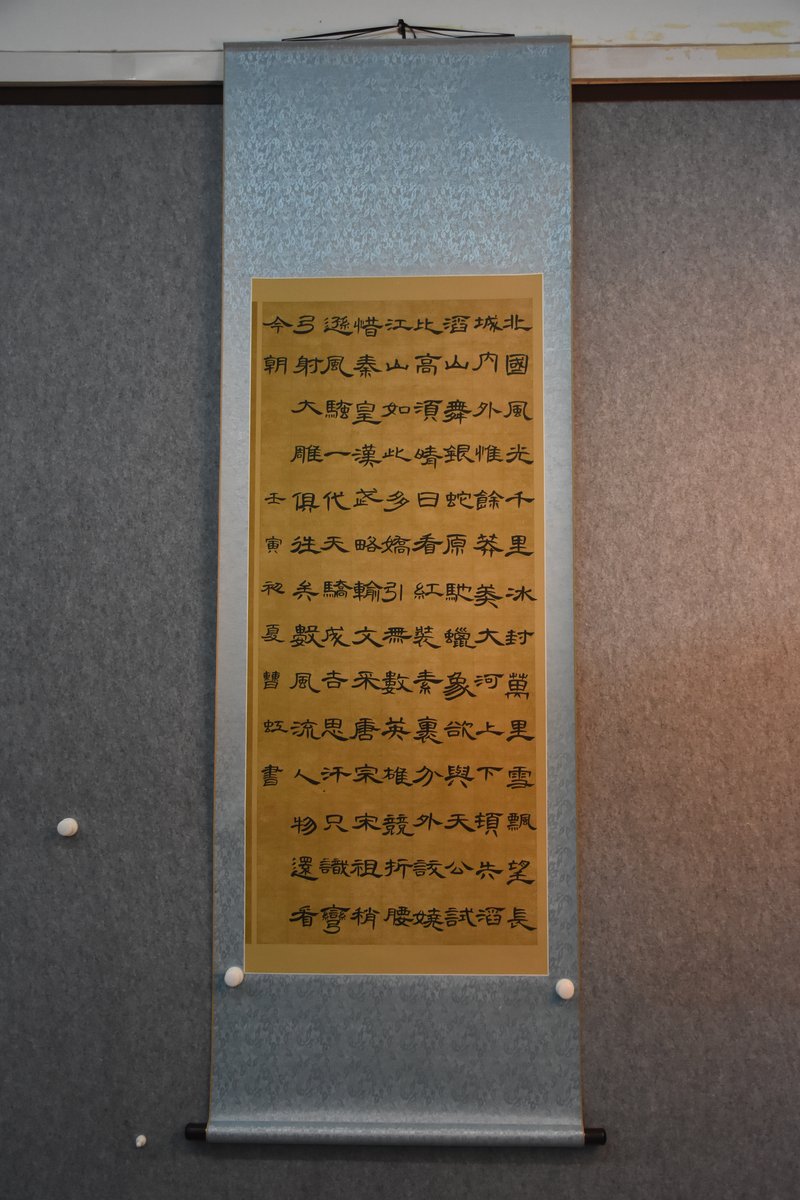 北國風光千里冰封萬里雪飄望長
城内外惟餘莽美大河上下頓失滔
滔山舞銀蛇原馳蠟象欲與天公試
比高須晴日看紅裝素裹分外該嬈
江山如此多嬌引無數英雄競折腰
惜秦皇漢武略輸文采唐宗宋祖稍
遜風騷一代天驕成吉思汗只識彎
弓射大雕俱往矣數風流人物還看
今朝 壬寅初夏曹虹書